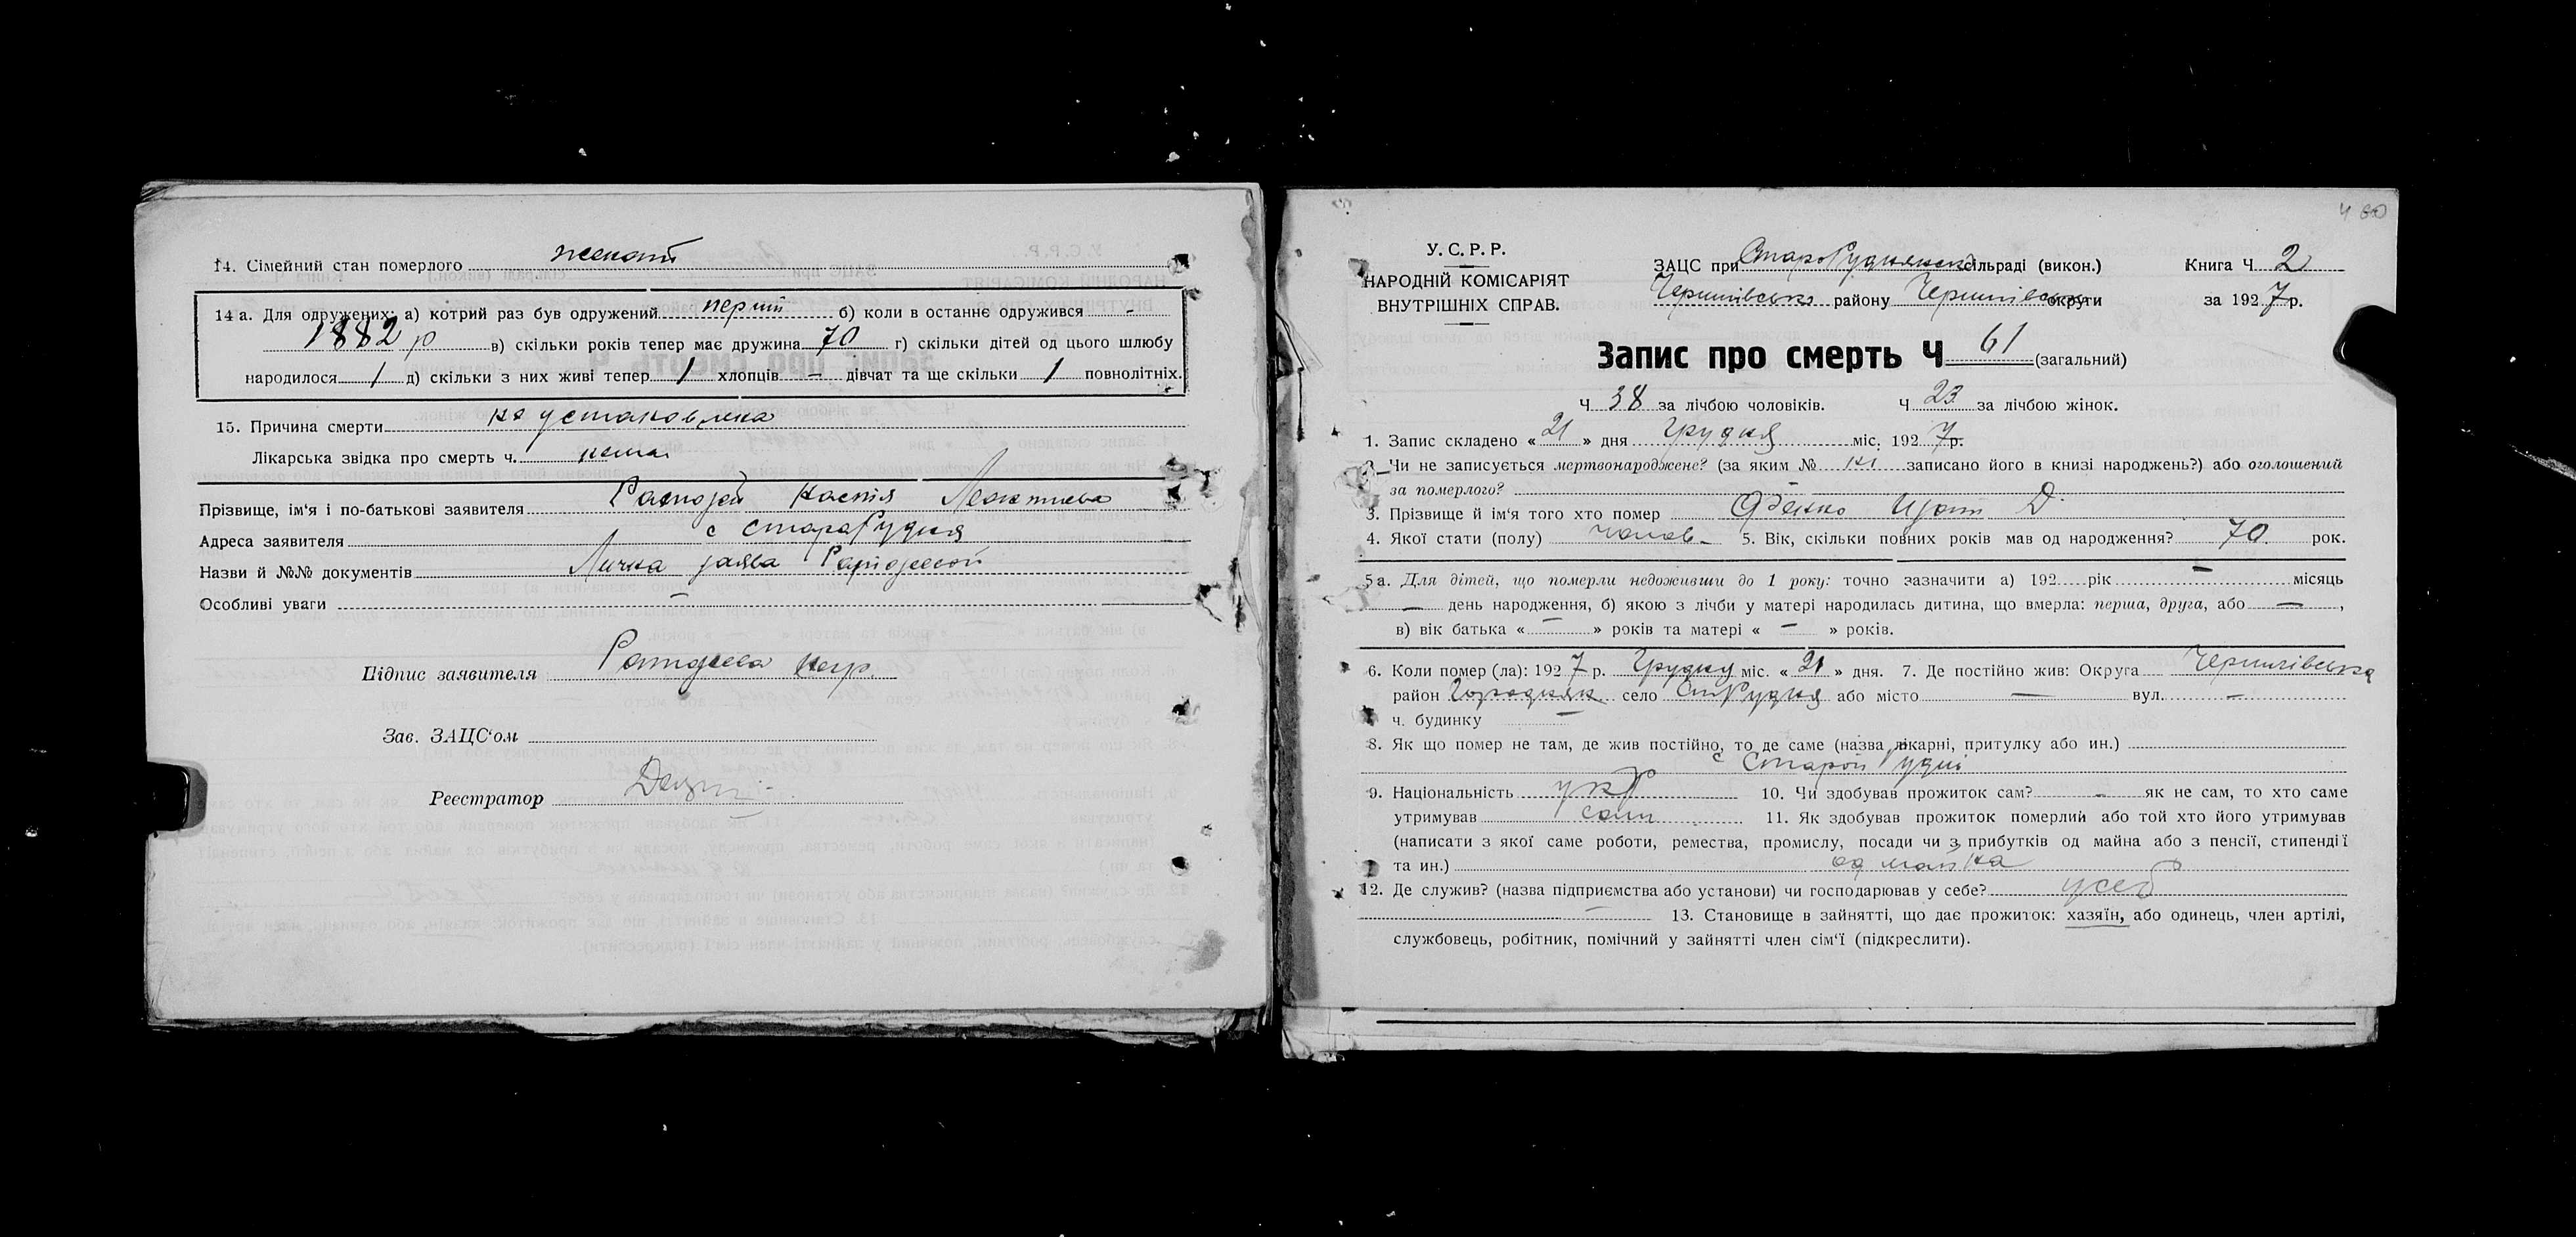 14. Сімейний стан померлого женат
14 а. Для одружених: а) котрий раз був одружений перший б) коли в останнє одружився -
1882 р в) скільки років тепер має дружина 70 г) скільки дітей од цього шлюбу
народилося 1 д) скільки з них живі тепер 1 хлопців — дівчат та ще скільки 1 повнолітніх.
15. Причина смерти не установлена
Лікарська звідка про смерть ч. нема
Прізвище, ім'я і по-батькові заявителя Настя Леонтиева
Адреса заявителя с Стара Рудня
Назви й №№ документів Лична заява
Особливі уваги —
Підпис заявителя
Зав. ЗАЦС'ом
Реєстратор
480
У. С. Р. Р.
НАРОДНІЙ КОМІСАРІЯТ
ВНУТРІШНІХ СПРАВ.
ЗАЦС при СтароРуднянск сільраді (викон.) Книга Ч 2
Чернигівсько району Чернигівсько округи за 1927 р.
Запис про смерть Ч 61 (загальний)
Ч 38 за лічбою чоловіків. Ч 23 за лічбою жінок.
1. Запис складено « 21 » дня Грудня міс. 1927 р.
2. Чи не записується мертвонароджене? (за яким № ні записано його в книзі народжень?) або оголошений
за померлого?
3. Прізвище й ім'я того хто помер Д
4. Якої стати (полу) чолов- 5. Вік, скільки повних років мав од народження? 70 рок.
5 а. Для дітей, що померли недоживши до 1 року: точно зазначити а) 192 рік — місяць
— день народження, б) якою з лічби у матері народилась дитина, що вмерла: перша, друга, або —,
в) вік батька « — » років та матері « — » років.
6. Коли помер (ла): 1927 р. Грудня міс. « 21 » дня. 7. Де постійно жив: Округа Чернигівська
район Городняк село Ст Рудня або місто — вул. —
ч. будинку —
8. Як що помер не там, де жив постійно, то де саме (назва лікарні, притулку або ин.)
с Старой Рудні
9. Національність укр 10. Чи здобував прожиток сам? - як не сам, то хто саме
утримував сам 11. Як здобував прожиток померлий або той хто його утримував
(написати з якої саме роботи, ремества, промислу, посади чи з прибутків од майна або з пенсії, стипендії
та ин.) од майна
12. Де служив? (назва підприємства або установи) чи господарював у себе? у себе
— 13. Становище в зайнятті, що дає прожиток: хазяїн, або одинець, член артілі,
службовець, робітник, помічний у зайнятті член сім'ї (підкреслити).